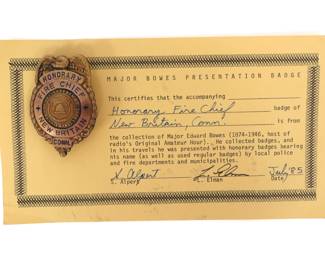 HONORARY
FIRE CHIEF
NEW BRITAIN
CONN.
MAJOR BOWES PRESENTATION BADGE
This certifies that the accompanying
Honorary Fire Chief badge of
New Britain, Conn. is from
the collection of Major Edward Bowes (1874-1946, host of
radio's Original Amateur Hour). He collected badges, and
in his travels he was presented with honorary badges bearing
his name (as well as used regular badges) by local police
and fire departments and municipalities.
S. Alpert L. Elman July '85
S. Alpert L. Elman Date